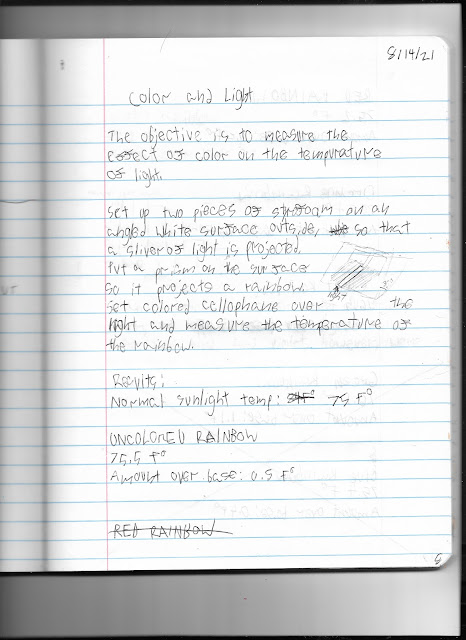 8/14/21
Color and Light
The objective is to measure the
effect of color on the tempurature
of light.
Set up two pieces of styrofoam on an
angled white surface outside, so that
a sliver of light is projected.
Put a prism on the surface
so it projects a rainbow.
Set colored cellophane over the
light and measure the temperature of
the rainbow.
Results:
Normal sunlight temp: 75 F°
UNCOLORED RAINBOW
75.5 F°
Amount over base: 0.5 F°
RED RAINBOW